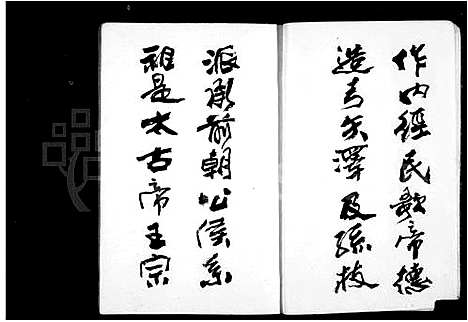 作內經民歌帝德
造弓矢澤及孫枝
派承前朝公侯系
祖是太古帝王宗